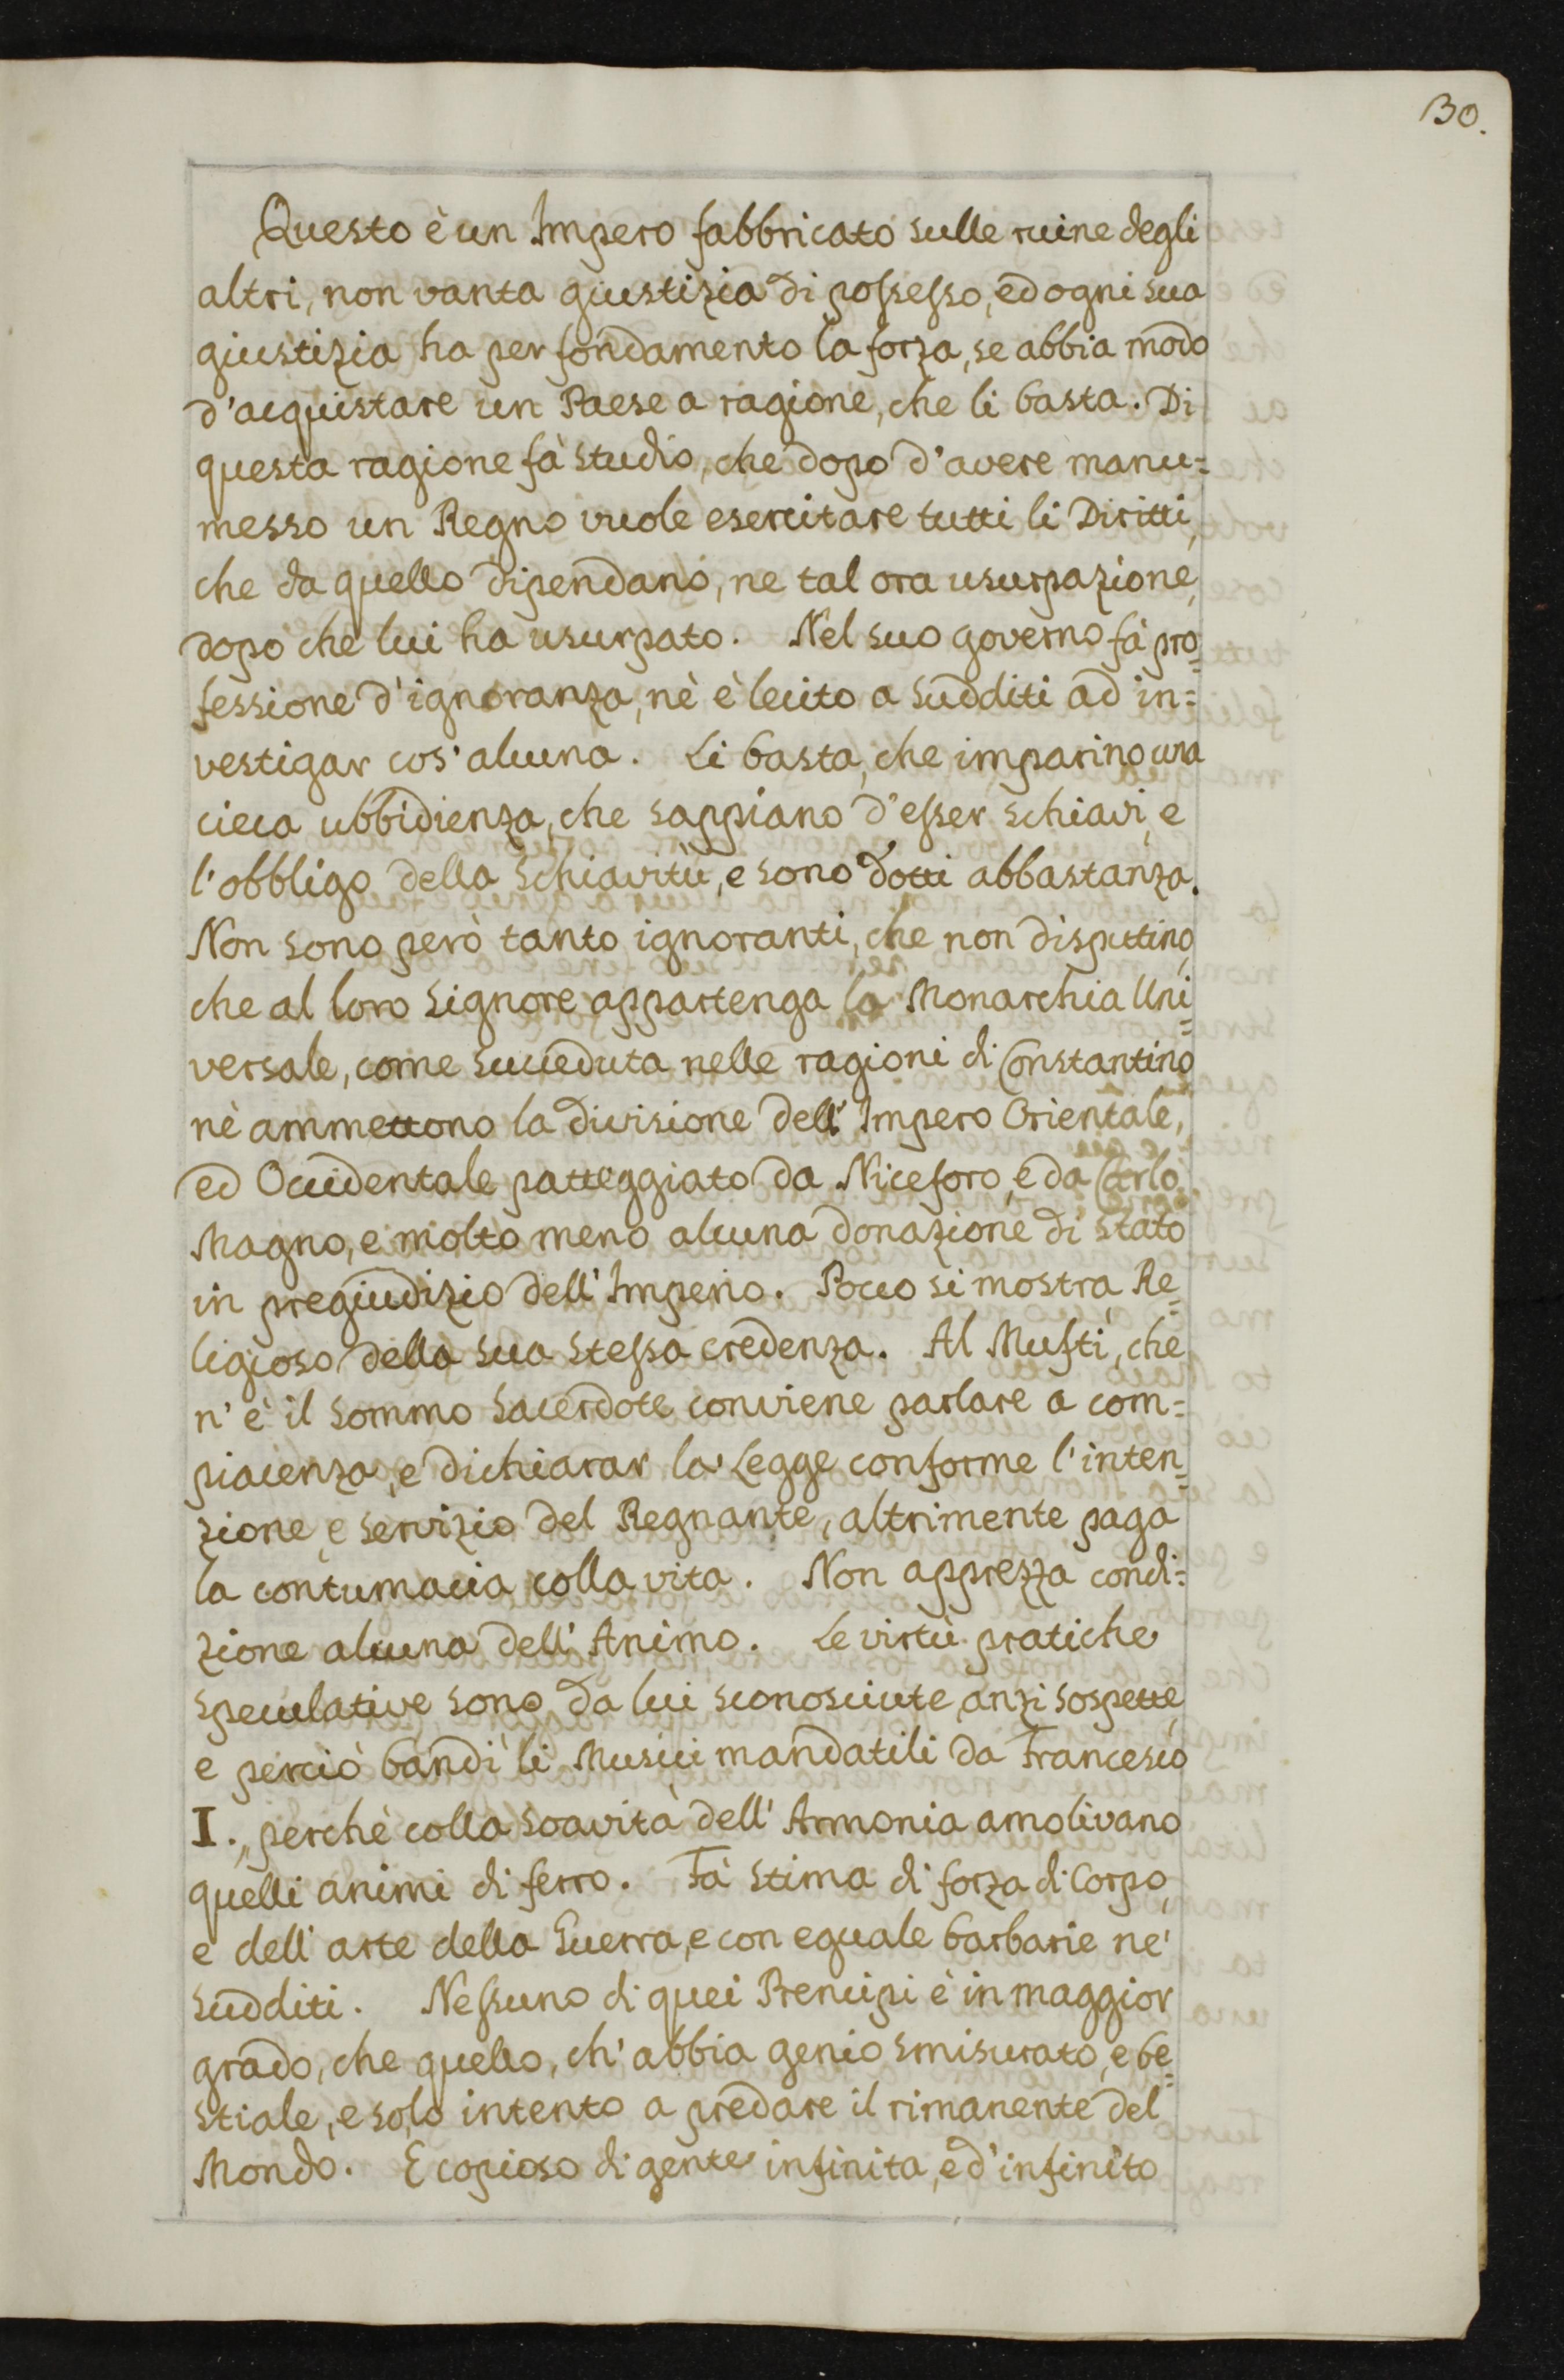 30.
Questo è un Impero fabbricato sulle ruine degli
altri, non vanta giustizia di possesso, ed ogni sua
giustizia ha per fondamento la forza, se abbia modo
d'acquistare un Paese a ragione, che li basta. Di
questa ragione fà studio, che dopo d'avere manu=
messo un Regno vuole esercitare tutti li Diritti,
che da quello dipendano, ne tal ora usurpazione,
dopo che lui ha usurpato. Nel suo governo fà pro=
fessione d'ignoranza, nè è lecito a sudditi ad in=
vestigar cos'alcuna. Li basta, che imparino una
cieca ubbidienza, che sappiano d'esser schiavi, e
l'obbligo della schiavitù, e sono dotti abbastanza.
Non sono però tanto ignoranti, che non disputtino,
che al loro Signore appartenga la Monarchia Uni=
versale, come succeduta nelle ragioni di Constantino
nè ammettono la divisione dell'Impero Orientale,
ed Occidentale patteggiato da Niceforo, e da Carlo
Magno, e molto meno alcuna donazione di stato
in pregiudizio dell'Imperio. Poco si mostra Re=
ligioso della sua stessa credenza. Al Muftì, che
n'è il sommo Sacerdote conviene parlare a com=
piacenza, e dichiarar la Legge conforme l'inten=
zione, e servizio del Regnante, altrimente paga
la contumacia colla vita. Non apprezza condi=
zione alcuna dell'Animo. Le virtù pratiche
speculative sono da lui sconosciute, anzi sospette,
e perciò bandì li Musici mandatili da Francesco
I., perchè colla soavità dell'Armonia amolivano
quelli animi di ferro. Fà stima di forza di Corpo,
e dell'arte della Guerra, e con eguale barbarie ne'
sudditi. Nessuno di quei Prencipi è in maggior
grado, che quello, ch'abbia genio smisurato, e be=
stiale, e solo intento a predare il rimanente del
Mondo. E copioso di gente infinita, ed'infinito